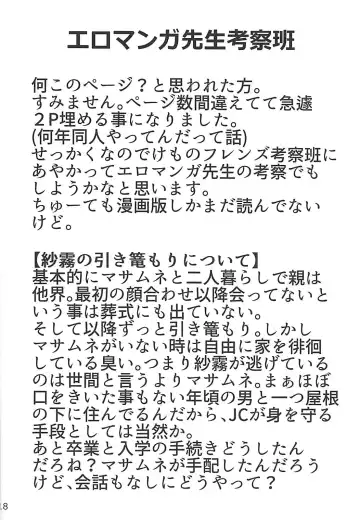 エロマンガ先生考察班
何このページ？と思われた方。
すみません。ページ数間違えてて急遽
２Ｐ埋める事になりました。
(何年同人やってんだって話)
せっかくなのでけものフレンズ考察班に
あやかってエロマンガ先生の考察でも
しようかなと思います。
ちゅーても漫画版しかまだ読んでない
けど。
【紗霧の引き篭もりについて】
基本的にマサムネと二人暮らしで親は
他界。最初の顔合わせ以降会ってないと
いう事は葬式にも出ていない。
そして以降ずっと引き篭もり。しかし
マサムネがいない時は自由に家を徘徊
している臭い。つまり紗霧が逃げている
のは世間と言うよりマサムネ。まぁほぼ
口をきいた事もない年頃の男と一つ屋根
の下に住んでるんだから、JCが身を守る
手段としては当然か。
あと卒業と入学の手続きどうしたん
だろね？マサムネが手配したんだろう
けど、会話もなしにどうやって？
18